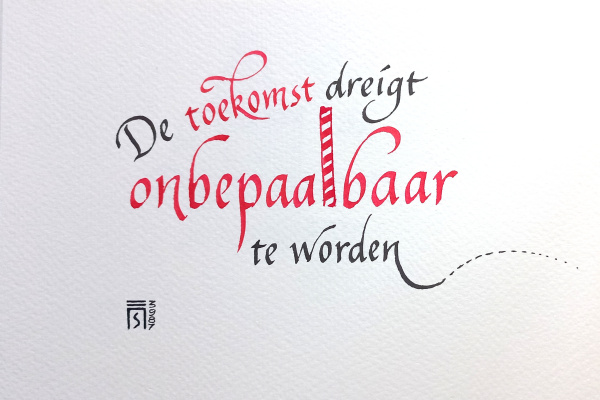 De toekomst dreigt
onbepaalbaar
te worden